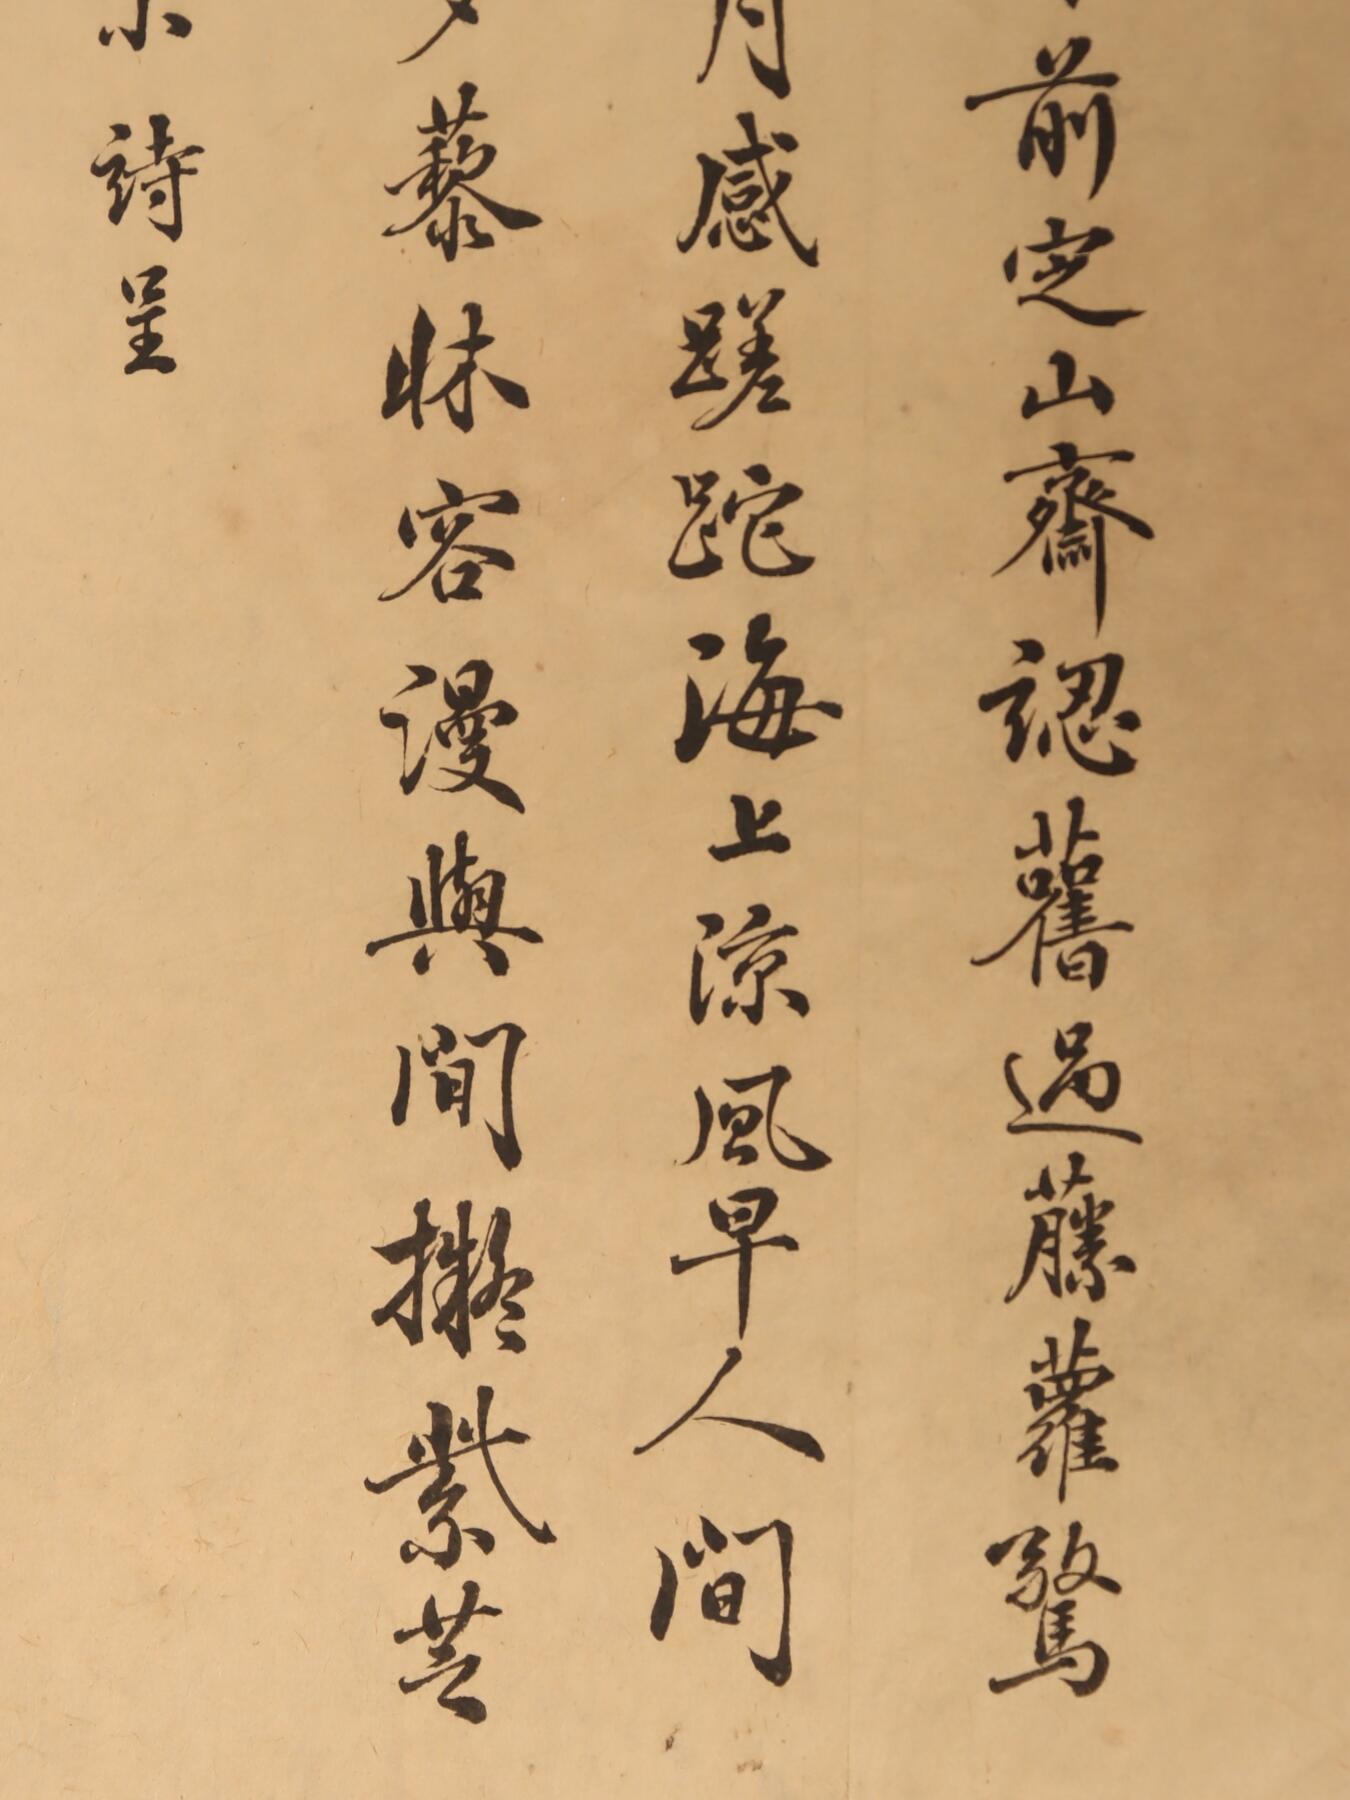 前定山齋認舊過藤蘿驚
月感蹉跎海上涼風早人間
藜牀容謾與間擬紫芝
小詩呈